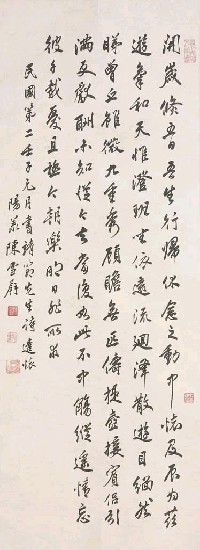 開歲倏五日吾生行歸休念之動中懷及辰為茲
遊氣和天惟澄班坐依遠流迴澤散遊目緬然
睇曾丘雖微九重秀顧瞻無匹儔提壺接賓侶引
滿更獻酬未知從今去當復如此不中觴縱遙情忘
彼千載憂且極今朝樂明日非所求
民國第二壬子元月書靖節先生詩遣懷
陽羨陳